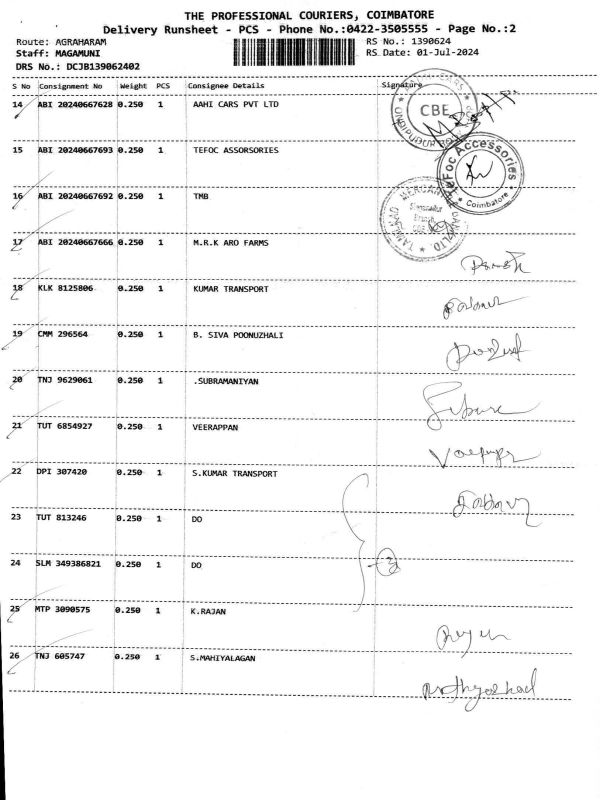 THE PROFESSIONAL COURIERS, COIMBATORE
Delivery Runsheet - PCS - Phone No.:0422-3505555 - Page No.:2
Route: AGRAHARAM RS No.: 1390624
Staff: MAGAMUNI RS Date: 01-Jul-2024
DRS No.: DCJB139062402
S No Consignment No Weight PCS Consignee Details Signature
14 ABI 20240667628 0.250 1 AAHI CARS PVT LTD
CBE
15 ABI 20240667693 0.250 1 TEFOC ASSORSORIES
TeFoc Accessories
* Coimbatore *
16 ABI 20240667692 0.250 1 TMB
Branch
17 ABI 20240667666 0.250 1 M.R.K ARO FARMS
18 KLK 8125806 0.250 1 KUMAR TRANSPORT
19 CMM 296564 0.250 1 B. SIVA POONUZHALI
20 TNJ 9629061 0.250 1 .SUBRAMANIYAN
21 TUT 6854927 0.250 1 VEERAPPAN
22 DPI 307420 0.250 1 S.KUMAR TRANSPORT
23 TUT 813246 0.250 1 DO
24 SLM 349386821 0.250 1 DO
3
25 MTP 3090575 0.250 1 K.RAJAN
26 TNJ 605747 0.250 1 S.MAHIYALAGAN